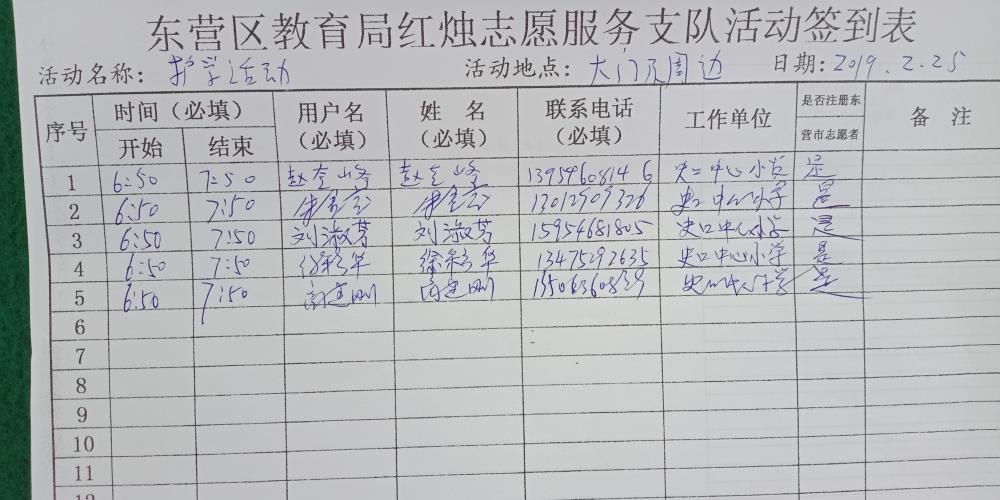 东营区教育局红烛志愿服务支队活动签到表
活动名称：护学活动 活动地点：大门及周边 日期：2019.2.25
序号 时间（必填） 用户名（必填） 姓名（必填） 联系电话（必填） 工作单位 是否注册东营市志愿者 备注
开始 结束
1 6:50 7:50 赵奎峰 赵奎峰 13954608146 史口中心小学 是
2 6:50 7:50 13012909326 史口中心小学 是
3 6:50 7:50 刘淑芳 刘淑芳 15954681805 史口中心小学 是
4 6:50 7:50 徐彩华 徐彩华 13475292635 史口中心小学 是
5 6:50 7:50 史口中心小学 是
6
7
8
9
10
11